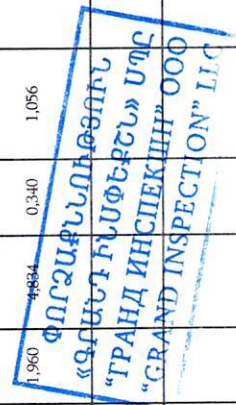 1,960 4,834 0,340 1,056
ՓՈՐՁԱՔՆՆՈՒԹՅՈՒՆ
«ԳՐԱՆԴ ԻՆՍՓԵՔՇՆ» ՍՊԸ
"ГРАНД ИНСПЕКШН" ООО
"GRAND INSPECTION" LLC